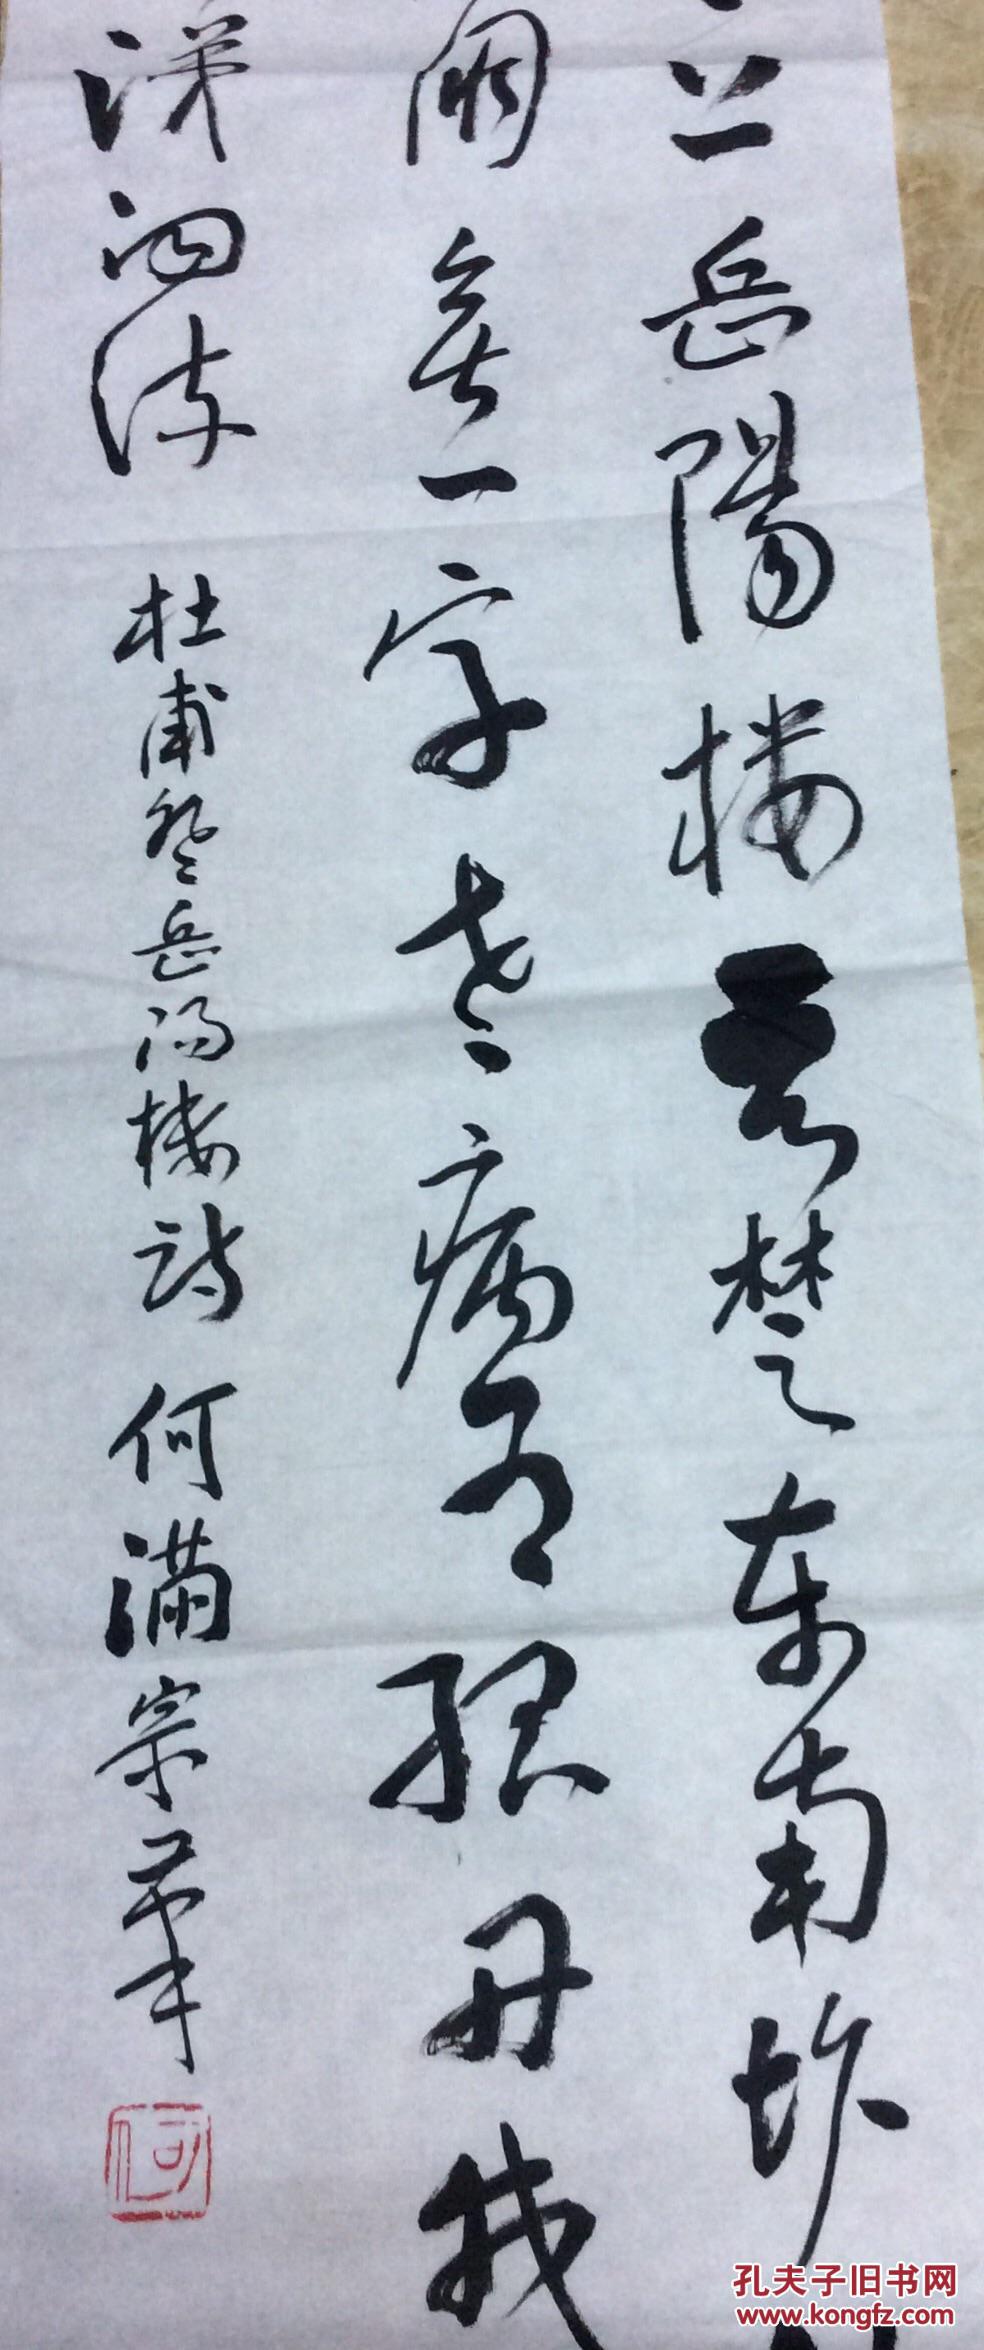 上岳陽樓吴楚東南坼
朋無一字老病有孤舟戎
涕泗流
杜甫登岳陽樓詩 何滿宗筆
何
孔夫子旧书网
www.kongfz.com